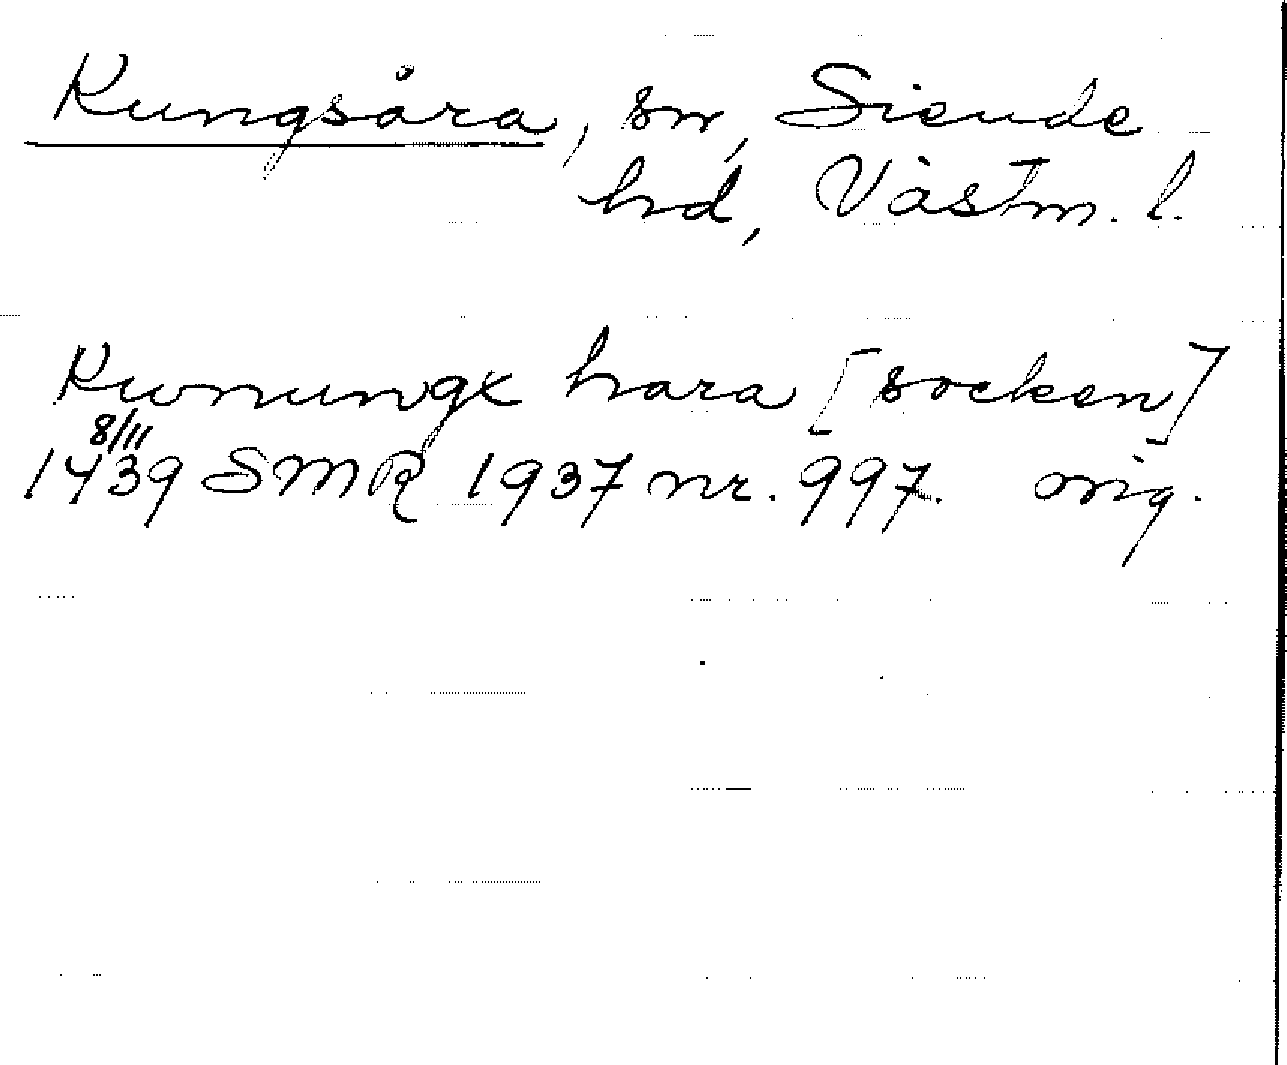 Kungsåra, sn, Siende
hd, Västm. l.
Konungx hara [socken]
8/11
1439 SMR 1937 nr. 997. orig.